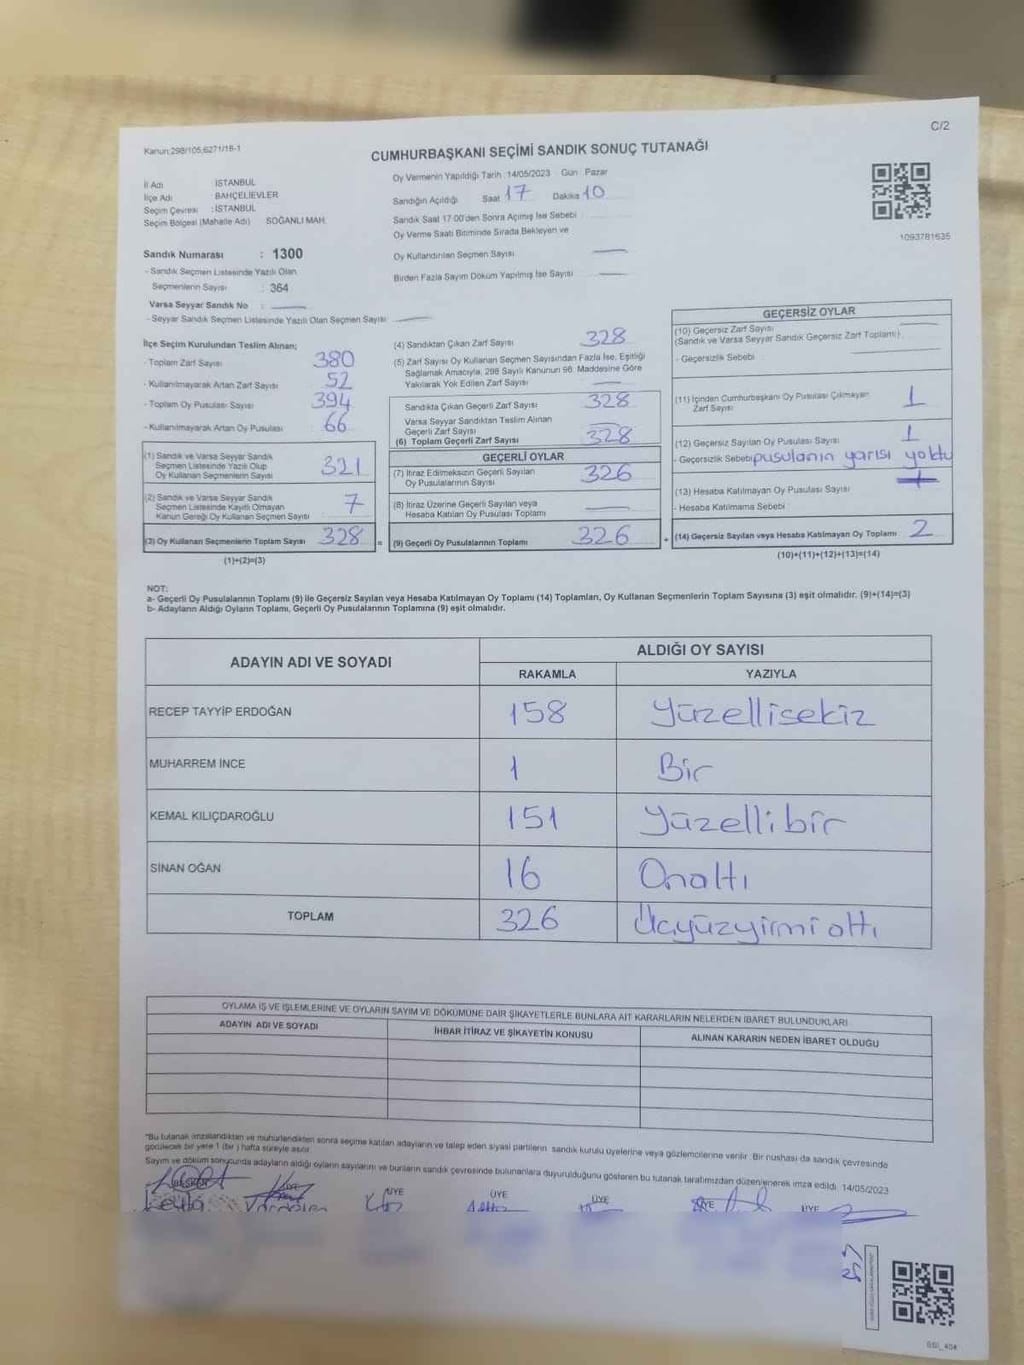 C/2
Kanun:298/105,6271/18-1
CUMHURBAŞKANI SEÇİMİ SANDIK SONUÇ TUTANAĞI
İl Adı İSTANBUL
İlçe Adı BAHÇELİEVLER
Seçim Çevresi :İSTANBUL
Seçim Bölgesi (Mahalle Adı) SOĞANLI MAH.
Sandık Numarası : 1300
- Sandık Seçmen Listesinde Yazılı Olan
Seçmenlerin Sayısı : 364
Varsa Seyyar Sandık No :
- Seyyar Sandık Seçmen Listesinde Yazılı Olan Seçmen Sayısı
Oy Vermenin Yapıldığı Tarih :14/05/2023 Gün : Pazar
Sandığın Açıldığı Saat 17 Dakika 10
Sandık Saat 17:00'den Sonra Açılmış İse Sebebi
Oy Verme Saati Bitiminde Sırada Bekleyen ve
Oy Kullandırılan Seçmen Sayısı
Birden Fazla Sayım Döküm Yapılmış İse Sayısı
1093781635
İlçe Seçim Kurulundan Teslim Alınan;
- Toplam Zarf Sayısı 380
- Kullanılmayarak Artan Zarf Sayısı 52
- Toplam Oy Pusulası Sayısı 394
- Kullanılmayarak Artan Oy Pusulası 66
(1) Sandık ve Varsa Seyyar Sandık
Seçmen Listesinde Yazılı Olup
Oy Kullanan Seçmenlerin Sayısı 321
(2) Sandık ve Varsa Seyyar Sandık
Seçmen Listesinde Kayıtlı Olmayan
Kanun Gereği Oy Kullanan Seçmen Sayısı 7
(3) Oy Kullanan Seçmenlerin Toplam Sayısı 328 =
(1)+(2)=(3)
(4) Sandıktan Çıkan Zarf Sayısı 328
(5) Zarf Sayısı Oy Kullanan Seçmen Sayısından Fazla İse, Eşitliği
Sağlamak Amacıyla, 298 Sayılı Kanunun 98. Maddesine Göre
Yakılarak Yok Edilen Zarf Sayısı
Sandıkta Çıkan Geçerli Zarf Sayısı 328
Varsa Seyyar Sandıktan Teslim Alınan
Geçerli Zarf Sayısı
(6) Toplam Geçerli Zarf Sayısı 328
GEÇERLİ OYLAR
(7) İtiraz Edilmeksizin Geçerli Sayılan
Oy Pusulalarının Sayısı 326
(8) İtiraz Üzerine Geçerli Sayılan veya
Hesaba Katılan Oy Pusulası Toplamı
(9) Geçerli Oy Pusulalarının Toplamı 326 +
GEÇERSİZ OYLAR
(10) Geçersiz Zarf Sayısı
(Sandık ve Varsa Seyyar Sandık Geçersiz Zarf Toplamı)
- Geçersizlik Sebebi
(11) İçinden Cumhurbaşkanı Oy Pusulası Çıkmayan
Zarf Sayısı 1
(12) Geçersiz Sayılan Oy Pusulası Sayısı 1
- Geçersizlik Sebebi pusulanın yarısı yoktu
(13) Hesaba Katılmayan Oy Pusulası Sayısı
- Hesaba Katılmama Sebebi
(14) Geçersiz Sayılan veya Hesaba Katılmayan Oy Toplamı 2
(10)+(11)+(12)+(13)=(14)
NOT:
a- Geçerli Oy Pusulalarının Toplamı (9) ile Geçersiz Sayılan veya Hesaba Katılmayan Oy Toplamı (14) Toplamları, Oy Kullanan Seçmenlerin Toplam Sayısına (3) eşit olmalıdır. (9)+(14)=(3)
b- Adayların Aldığı Oyların Toplamı, Geçerli Oy Pusulalarının Toplamına (9) eşit olmalıdır.
ADAYIN ADI VE SOYADI ALDIĞI OY SAYISI
RAKAMLA YAZIYLA
RECEP TAYYİP ERDOĞAN 158 Yüzellisekiz
MUHARREM İNCE 1 Bir
KEMAL KILIÇDAROĞLU 151 Yüzellibir
SİNAN OĞAN 16 Onaltı
TOPLAM 326 Üçyüzyirmialtı
OYLAMA İŞ VE İŞLEMLERİNE VE OYLARIN SAYIM VE DÖKÜMÜNE DAİR ŞİKAYETLERLE BUNLARA AİT KARARLARIN NELERDEN İBARET BULUNDUKLARI
ADAYIN ADI VE SOYADI İHBAR İTİRAZ VE ŞİKAYETİN KONUSU ALINAN KARARIN NEDEN İBARET OLDUĞU
*Bu tutanak imzalandıktan ve mühürlendikten sonra seçime katılan adayların ve talep eden siyasi partilerin sandık kurulu üyelerine veya gözlemcilerine verilir. Bir nushası da sandık çevresinde
görülecek bir yere 1 (bir ) hafta süreyle asılır.
Sayım ve döküm sonucunda adayların aldığı oyların sayılarını ve bunların sandık çevresinde bulunanlara duyurulduğunu gösteren bu tutanak tarafımızdan düzenlenerek imza edildi. 14/05/2023
ÜYE ÜYE ÜYE ÜYE ÜYE